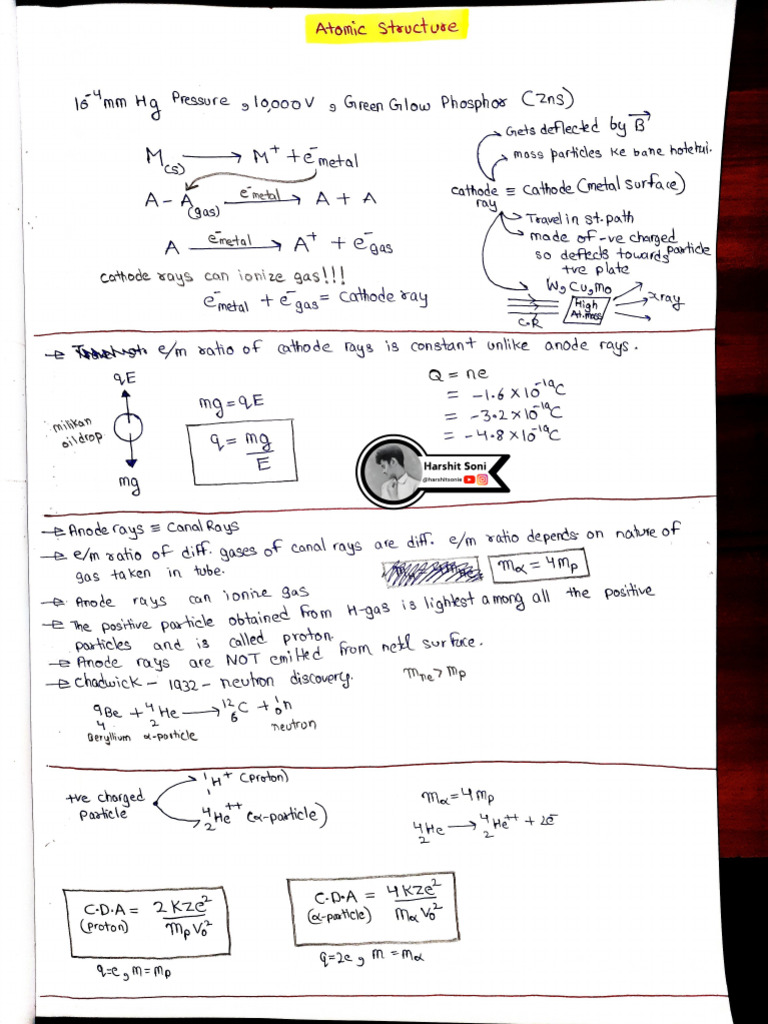 Atomic Structure
10⁻⁴ mm Hg Pressure, 10,000V, Green Glow Phosphor (Zns)
M(s) → M⁺ + e⁻metal
A - A(gas) e⁻metal → A + A
A e⁻metal → A⁺ + e⁻gas
cathode rays can ionize gas!!!
e⁻metal + e⁻gas = cathode ray
Gets deflected by B⃗
mass particles ke bane hote hui.
cathode ray ≡ cathode (metal surface)
Travel in st. path
made of -ve charged particle
so deflects towards
+ve plate
W, Cu, Mo
High
At. mass
x ray
C.R
e/m ratio of cathode rays is constant unlike anode rays.
qE
milikan
oil drop
mg
mg = qE
q = mg/E
Q = ne
= -1.6 × 10⁻¹⁹C
= -3.2 × 10⁻¹⁹C
= -4.8 × 10⁻¹⁹C
Harshit Soni
@harshitsonia
Anode rays ≡ Canal Rays
e/m ratio of diff. gases of canal rays are diff. e/m ratio depends on nature of
gas taken in tube.
mα = 4mp
Anode rays can ionize gas
The positive particle obtained from H-gas is lightest among all the positive
particles and is called proton.
Anode rays are NOT emitted from metl surface.
Chadwick - 1932 - neutron discovery.
mne > mp
⁹₄Be + ⁴₂He → ¹²₆C + ¹₀n
Beryllium α-particle neutron
+ve charged
Particle
¹₁H⁺ (proton)
⁴₂He⁺⁺ (α-particle)
mα = 4mp
⁴₂He → ⁴₂He⁺⁺ + 2e⁻
C.D.A = 2KZe²/mpV₀²
(proton)
q=e, m=mp
C.D.A = 4KZe²/mαV₀²
(α-particle)
q=2e, m=mα